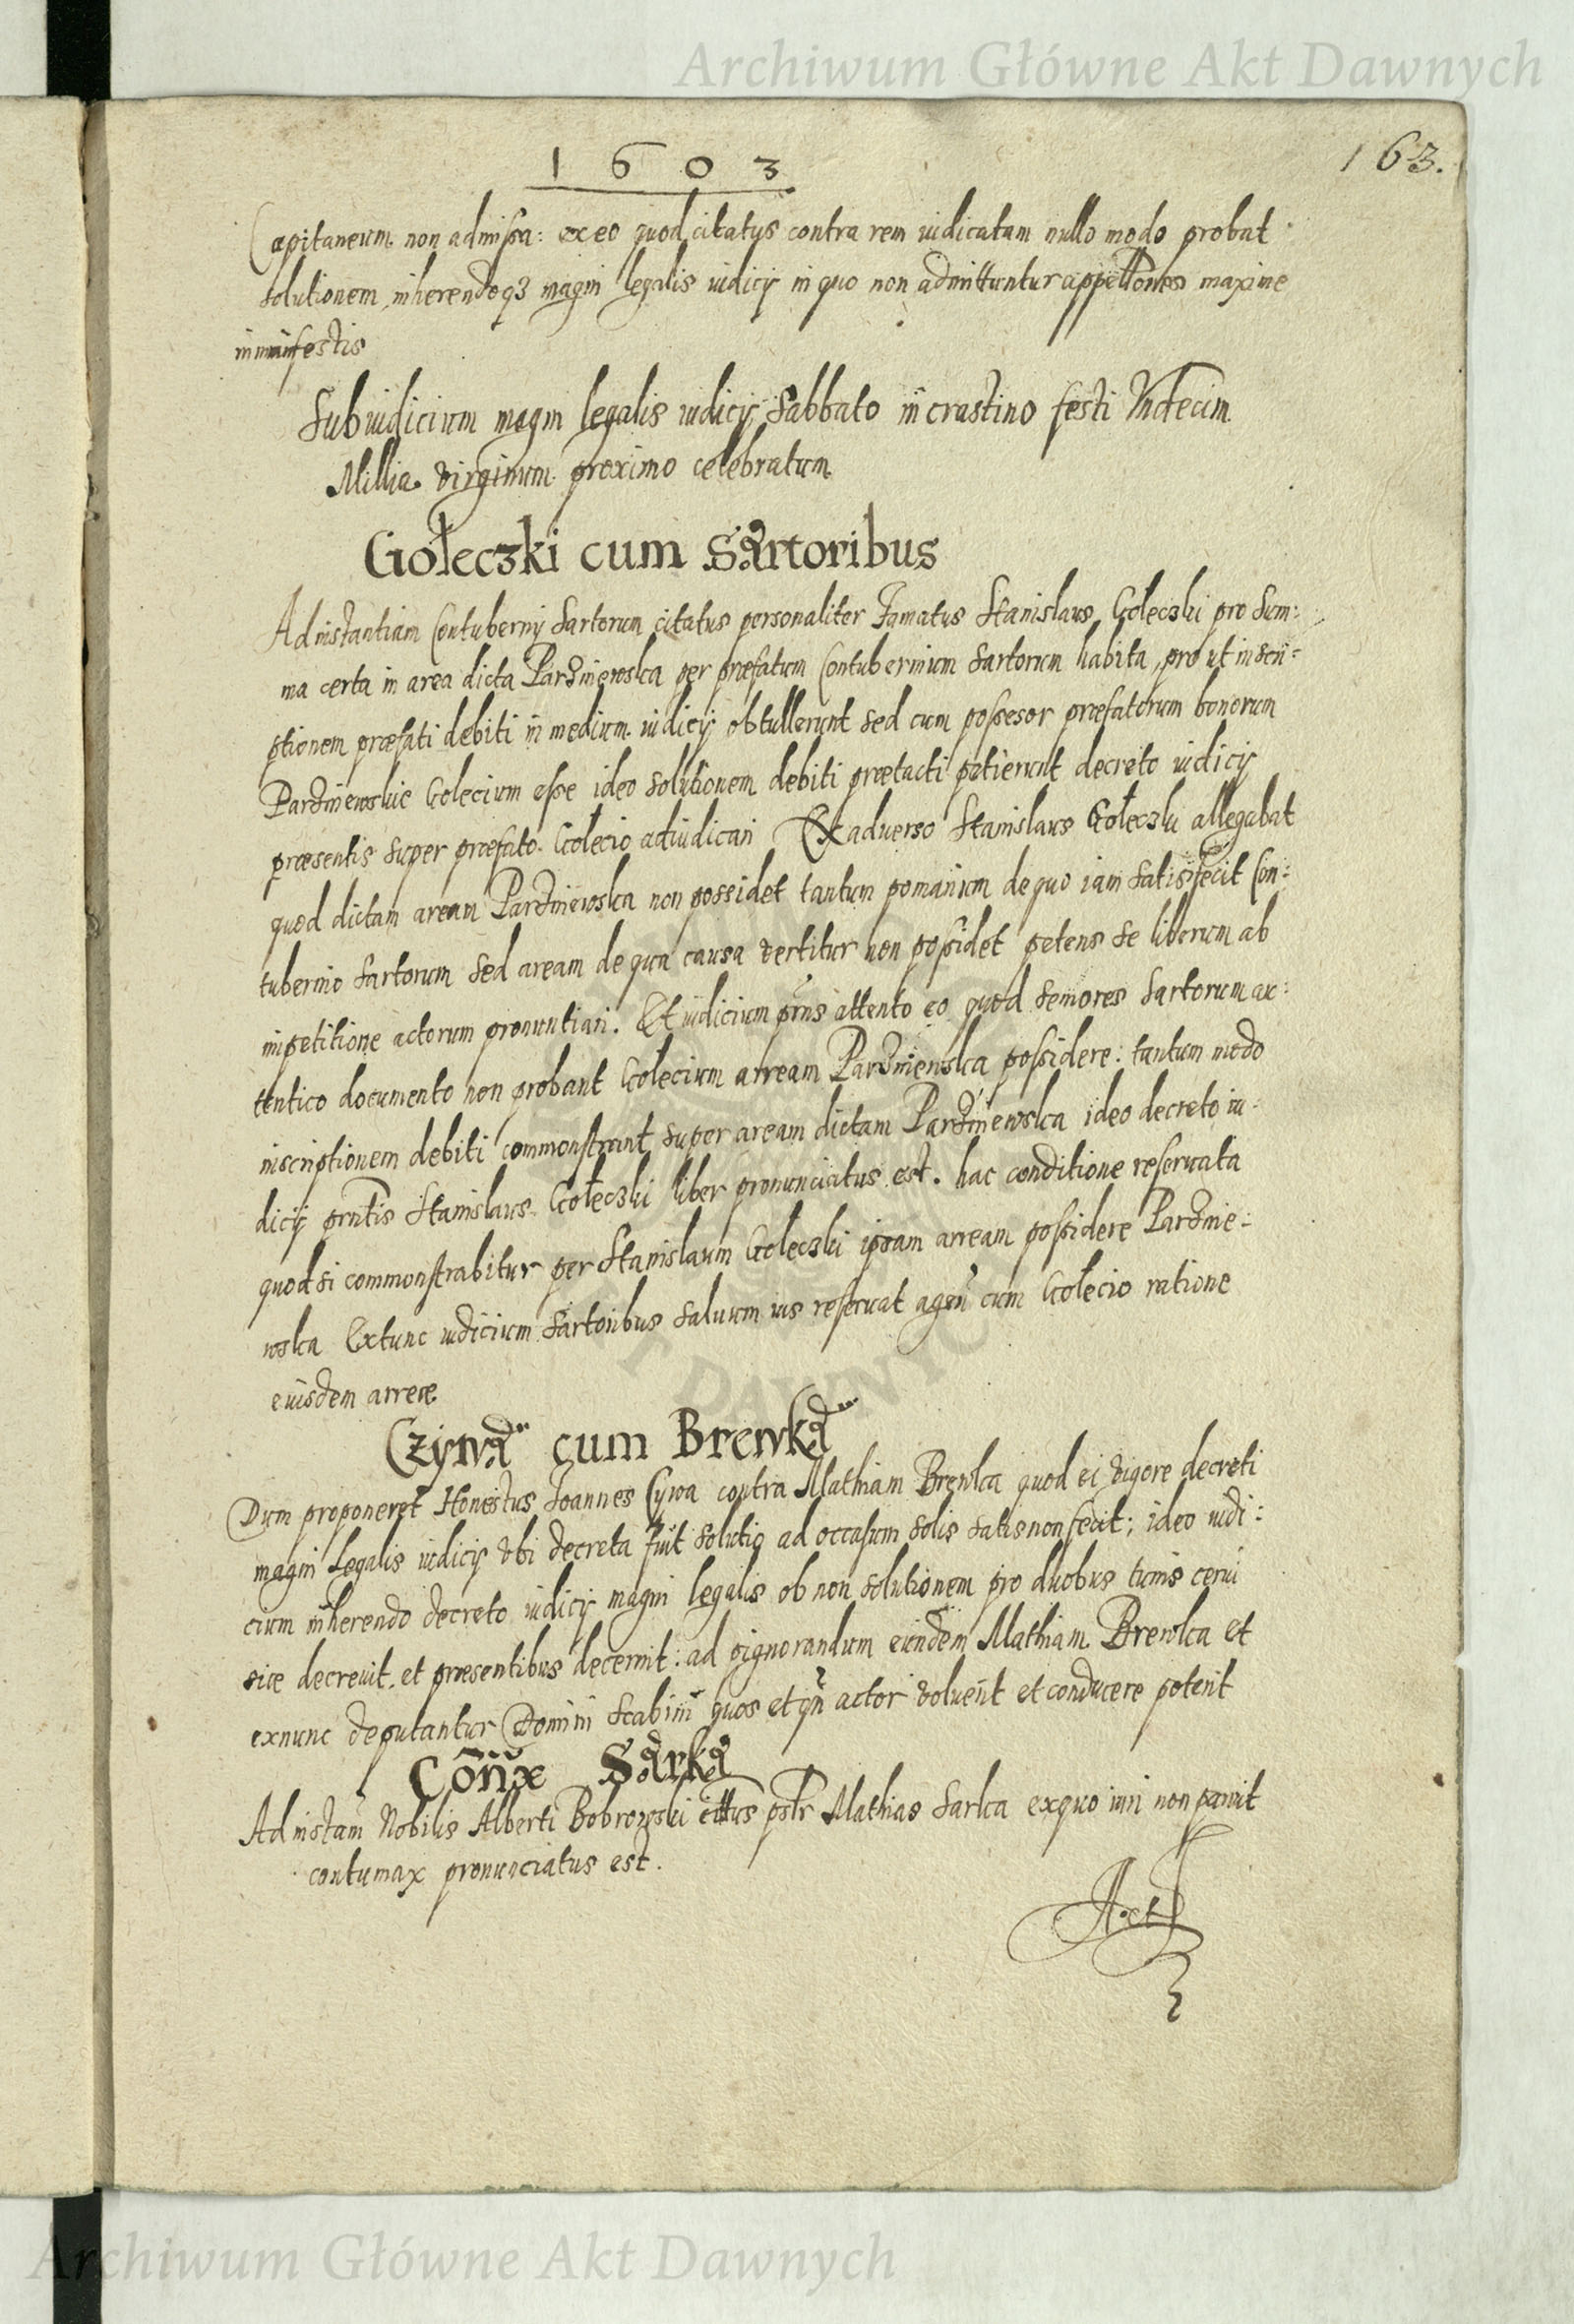 Archiwum Główne Akt Dawnych
1603
163.
Capitaneum non admissa: ex eo quod citatus contra rem iudicatam nullo modo probat
solutionem, inherendoq3 magni legalis iudicij in quo non admittuntur appellones maxime
in manifestis
Subiudicium magni legalis iudicij Sabbato in crastino festi Vndecim
Millia virginum proximo celebratum
Gołeczki cum Sartoribus
Ad instantiam Contubernij Sartorum citatus personaliter Famatus Stanislaus Gołeczki pro sum:
ma certa in area dicta Pardniewska per præfatum Contubernium Sartorum habita, pro ut inscri=
ptionem præfati debiti in medium iudicij obtullerunt sed cum possesor præfatorum bonorum
Pardniewskie Golecium esse ideo solutionem debiti prætacti petierunt decreto iudicij
præsentis super præfato Golecio adiudicari Ex aduerso Stanislaus Gołeczki allegabat
quod dictam aream Pardniewska non possidet tantum pomarium de quo iam satisfecit Con:
tubernio Sartorum sed aream de qua causa vertitur non possidet petens se liberum ab
impetitione actorum pronuntiari. Et iudicium prns attento eo quod seniores Sartorum au:
tentico documento non probant Golecium arream Pardniewska possidere: tantum modo
inscriptionem debiti commonstrant super aream dictam Pardniewska ideo decreto iu:
dicij prntis Stanislaus Gołeczki liber pronunciatus est. hac conditione reseruata
quod si commonstrabitur per Stanislaum Gołeczki ipsam arream possidere Pardnie:
wska Extunc iudicium Sartoribus saluum ius reseruat agen cum Gołecio ratione
eiusdem arreæ
Czÿwa cum Brewka
Dum proponeret Honestus Joannes Cywa contra Mathiam Brewka quod ei vigore decreti
magni Legalis iudicij vbi decreta fuit solutio ad occasum solis satis non fecit; ideo iudi:
cium inherendo decreto iudicij magni legalis ob non solutionem pro duobus tunis cerui
siæ decreuit, et præsentibus decernit: ad pignorandum eundem Mathiam Brewka et
exnunc deputantur Domini Scabini quos et qn actor voluerit et conducere poterit
Conx Sarka
Ad instam Nobilis Alberti Bobrowski cittus pslr Mathias Sarka exquo iuri non paruit
contumax pronunciatus est.
Archiwum Główne Akt Dawnych